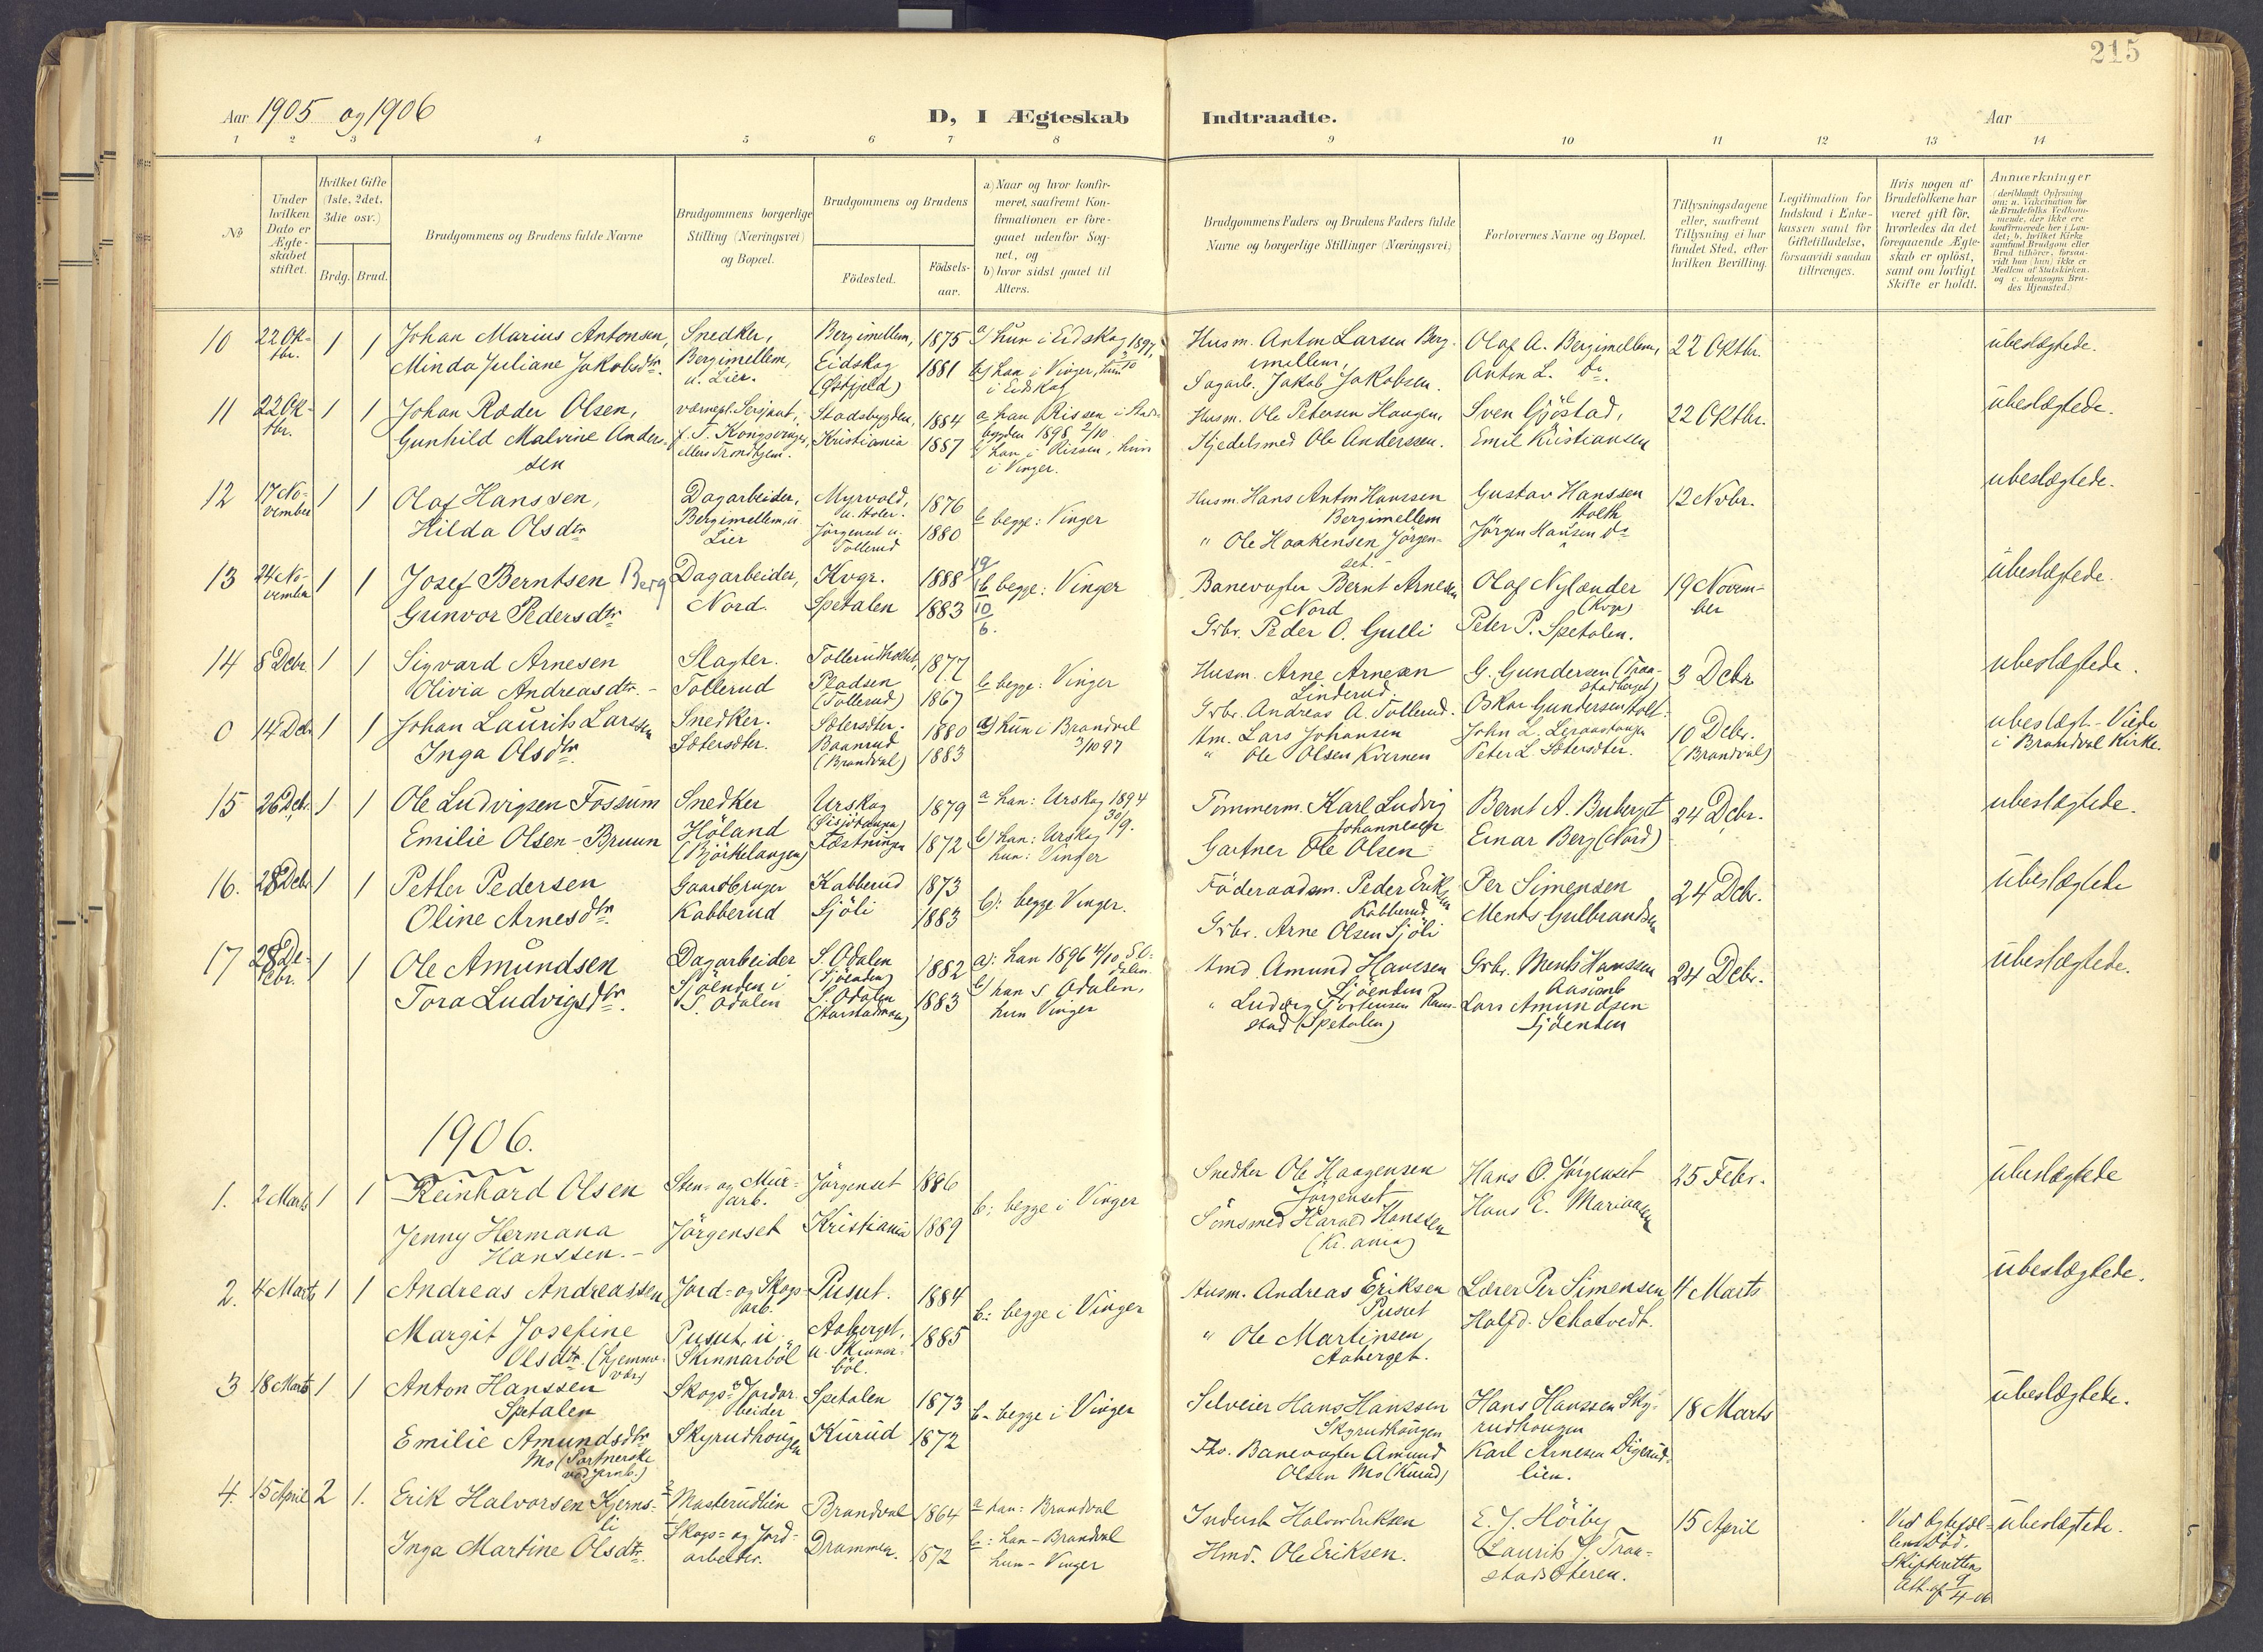 215
Aar 1905 og 1906
D, I Ægteskab Indtraadte.
Aar
1 2 3 4 5 6 7 8 9 10 11 12 13 14
No
Under hvilken Dato er Ægteskabet stiftet.
Hvilket Gifte (1ste, 2det, 3die osv.)
Brdg. Brud.
Brudgommens og Brudens fulde Navne
Brudgommens borgerlige Stilling (Næringsvei) og Bopæl.
Brudgommens og Brudens
Födested.
Födsels-aar.
a) Naar og hvor konfirmeret, saafremt Konfirmationen er foregaaet udenfor Sognet, og
b) hvor sidst gaaet til Alters.
Brudgommens Faders og Brudens Faders fulde Navne og borgerlige Stillinger (Næringsvei)
Forlovernes Navne og Bopæl.
Tillysningsdagene eller, saafremt Tillysning ei har fundet Sted, efter hvilken Bevilling.
Legitimation for Indskud i Enkekassen samt for Giftetilladelse, forsaavidt saadan tiltrænges.
Hvis nogen af Brudefolkene har været gift för, hvorledes da det foregaaende Ægteskab er oplöst, samt om lovligt Skifte er holdt.
Anmærkninger
(deriblandt Oplysning om: a. Vakcination for de Brudefolks Vedkommende, der ikke ere konfirmerede her i Landet; b. hvilket Kirkesamfund Brudgom eller Brud tilhörer, forsaavidt han (hun) ikke er Medlem af Statskirken, og c. udensogns Brudes Hjemsted.)
10 22 Oktbr. 1 1 Johan Marius Antonsen, Snedker, Bergimellem, 1875 a) hun i Eidskog 1897,
Minda Juliane Jakobsdtr. Bergimellem, u. Lier. Eidskog 1881 b) han i Vinger, hun i Eidskog
Husm. Anton Larsen Bergimellem, Olaf A. Bergimellem, 22 Oktbr. ubeslægtede.
Sagarb. Jakob Jakobsen. Anton L. do.
11 22 Oktbr. 1 1 Johan Rader Olsen, værnepl. Sersjant, Stadsbygden, 1884 a han Rissen i Stadsbygden 1898 2/10
Gunhild Malvine Andersen f. T. Kongsvinger, ellers Trondhjem. Kristiania 1887 b han i Rissen, hun i Vinger.
Husm. Ole Petersen Haugen, Sven Gjöstad, 22 Oktbr. ubeslægtede.
Kjedelsmed Ole Anderssen. Emil Kristiansen
12 17 November 1 1 Olaf Hanssen, Dagarbeider, Myrvold, 1876 b begge: Vinger
Hilda Olsdtr Bergimellem, u. Lier Jörgenset u. Tollerud 1880
Husm. Hans Anton Hanssen Bergimellem Gustav Hanssen Holth 12 Novbr. ubeslægtede.
" Ole Haakensen Jörgenset. Jörgen Hansen do
13 24 November 1 1 Josef Berntsen Berg Dagarbeider, Kvgr. 1888 b begge: Vinger
Gunvor Pedersdtr Nord. Spetalen 1883
Banevogter Bernt Arnesen Nord Olaf Nylander 19 November ubeslægtede.
Grbr. Peder O. Gulli Peter P. Spetalen.
14 8 Debr. 1 1 Sigvard Arnesen Slagter. Tollerudholtet, 1877 b begge: Vinger
Olivia Andreasdtr. Tollerud Pladsen (Tollerud) 1867
Husm. Arne Arnesen Linderud. G. Gundersen 3 Debr. ubeslægtede.
Grbr. Andreas A. Tollerud. Oskar Gundersen Holt.
0 14 Debr. 1 1 Johan Laurits Larssen Snedker. Sætersdter. 1880 a) hun i Brandval
Inga Olsdtr Sætersdter. Baanrud (Brandval) 1883 3/10 97
Hm. Lars Johansen John L. 10 Debr. (Brandval) ubeslægt - Viede i Brandval Kirke.
" Ole Olsen Kvernen Peter L. Sætersdter.
15 26 Debr. 1 1 Ole Ludvigsen Fossum Snedker Urskog 1879 a han: Urskog 1894
Emilie Olsen-Bruun Höland (Björkelangen) Fæstningen 1872 b) han: Urskog hun: Vinger 30/9.
Tömmerm. Karl Ludvig Johannesen Bernt A. Buberget 24 Debr. ubeslægtede.
Gartner Ole Olsen Einar Berg (Nord)
16. 28 Debr 1 1 Petter Pedersen Gaardbruger Kabberud 1873 b): begge Vinger.
Oline Arnesdtr Kabberud Sjöli 1883
Föderaadsm. Peder Eriksen Kabberud Per Simensen 24 Debr. ubeslægtede
Grbr. Arne Olsen Sjöli Ments Gulbrandsen
17 28 Debr. 1 1 Ole Amundsen Dagarbeider S. Odalen (Sjöenden) 1882 a): han 1896 4/10
Tora Ludvigsdtr. Sjöenden i S. Odalen S. Odalen 1883 b) han S Odalen, hun Vinger
Hmd Amund Hansen Sjöenden Grbr. Ments Hanssen 24 Debr. ubeslægtede.
" Ludvig Torstensen (Spetalen) Lars Amundsen Sjöenden
1906.
1. 2 Marts 1 1 Reinhard Olsen Sten- og Murarb. Jörgenset 1886 b: begge i Vinger
Jenny Hermana Hanssen. Jörgenset Kristiania 1889
Snedker Ole Haagensen Jörgenset Hans O. Jörgenset 25 Febr. ubeslægtede
Sömsmed Harald Hanssen (Kr.ania) Hans E.
2. 4 Marts 1 1 Andreas Andreassen Jord- og Skogsarb. Pusut. 1884 b: begge i Vinger
Margit Josefine Olsdtr. (hjemmevær) Pusut, u. Skinnarböl Aaberget, u. Skinnarböl. 1885
Husm. Andreas Eriksen Pusut Lærer Per Simensen 4 Marts ubeslægtede.
" Ole Martinsen Aaberget. Halfd. Schatvedt.
3 18 Marts 1 1 Anton Hanssen Spetalen Skogs- og Jordarbeider Spetalen 1873 b. begge i Vinger
Emilie Amundsdtr Mo Skyrudhougen Kurud 1872
Selveier Hans Hanssen Skyrudhougen Hans Hanssen Skyrudhougen 18 Marts ubeslægtede.
Fhv. Banevogter Amund Olsen Mo (Kurud) Karl Arnesen Digerudlien.
4. 15 April 2 1. Erik Halvorsen Kjernsli Masterudlien Brandval 1864 a han: Brandval
Inga Martine Olsdtr. Skogs- og Jordarbeider. Drammen. 1872 b: han - Brandval hun - Vinger
Inderst Halvor Eriksen E. J. Höiby 15 April Ved Ægtefællens Död. Skifterettens Att. af 9/4-06 ubeslægtede.
Hmd. Ole Eriksen. Laurits J.